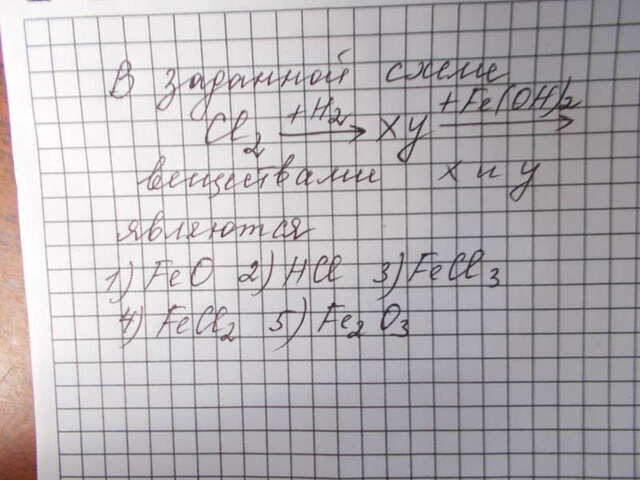 В заданной схеме
Cl₂ +H₂ → xy +Fe(OH)₂ →
веществами x и y
являются
1) FeO 2) HCl 3) FeCl₃
4) FeCl₂ 5) Fe₂O₃